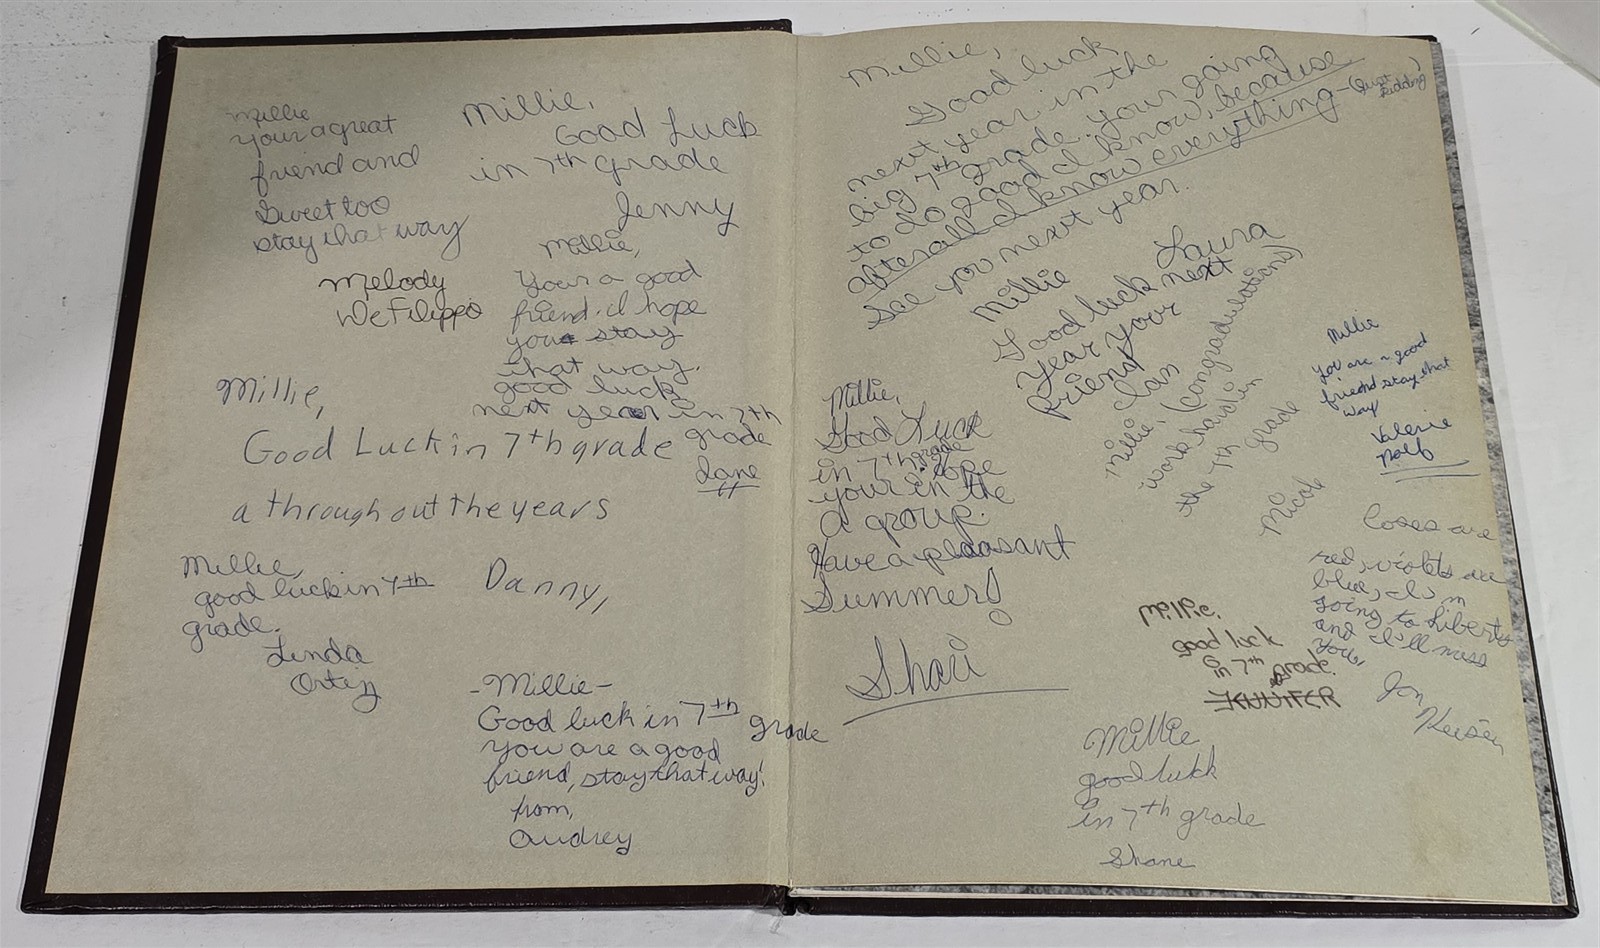 Millie
your a great
friend and
Sweet too
stay that way
Melody
DeFilippo
Millie,
Good Luck
in 7th grade
Jenny
Millie,
Your a good
friend. I hope
you stay
that way.
good luck
next year in 7th
grade
Jane
Millie,
Good Luck in 7th grade
a throughout the years
Danny,
Millie,
good luck in 7th
grade.
Linda
Ortiz
-Millie-
Good luck in 7th grade
you are a good
friend, stay that way!
from,
Audrey
Millie,
Good luck
next year in the
big 7th grade your going
to do good I know, because
after all I know everything-(Just kidding)
See you next year.
Laura
Millie
Good luck next
year your
friend
Ian
Millie, (congradulations)
work hard in
the 7th grade
Nicole
Millie
you are a good
friend stay that
way
Valerie
Millie,
Good Luck
in 7th grade
I hope
your in the
a group.
Have a pleasant
Summer!
Shari
Roses are
red, violets are
blue, I'm
going to Liberty
and I'll miss
you,
Jon
Millie,
good luck
in 7th grade.
JENNIFER
Millie
good luck
in 7th grade
Shane